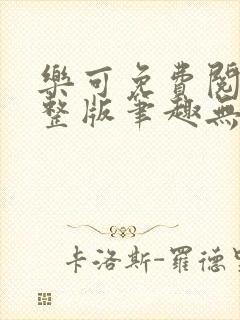 樂可免費閱
整版筆趣無
卡洛斯-羅德里